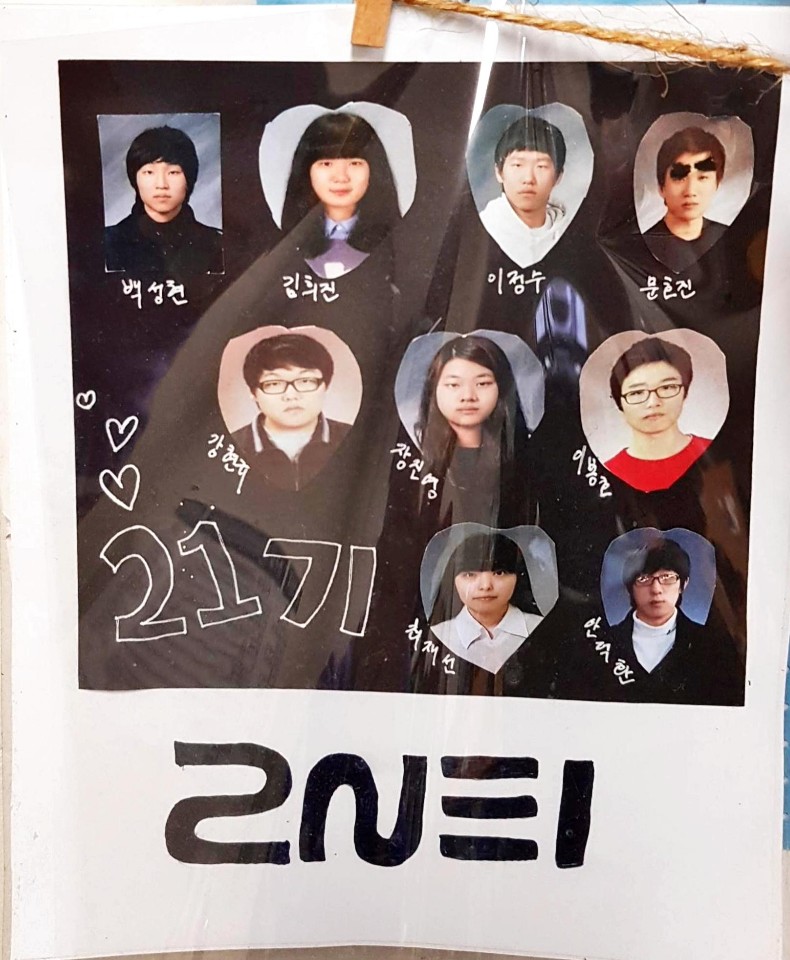 백성현 김희진 이정수 문효진
강현구 장진영 이봉호
21기
최재선 안덕환
2NE1